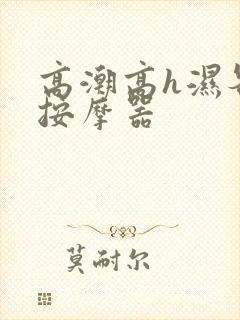 高潮高h湿
按摩器
莫耐尔